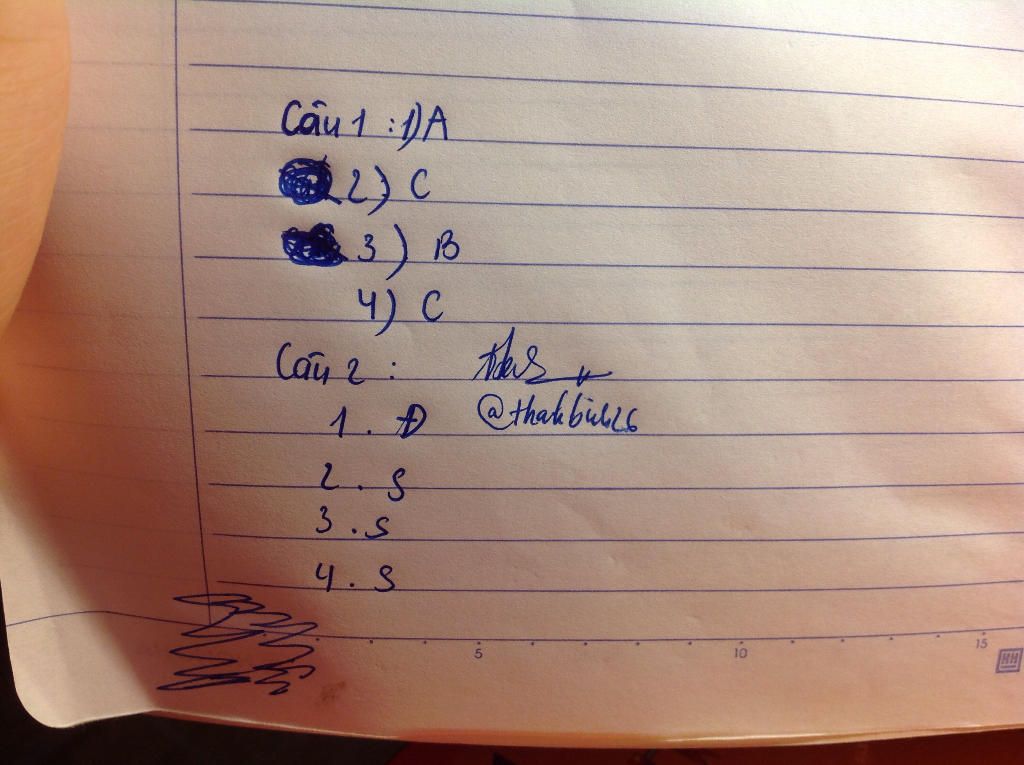 Câu 1 : 1) A
2) C
3) B
4) C
Câu 2 :
1 . Đ
2 . S
3 . S
4 . S
5 10 15